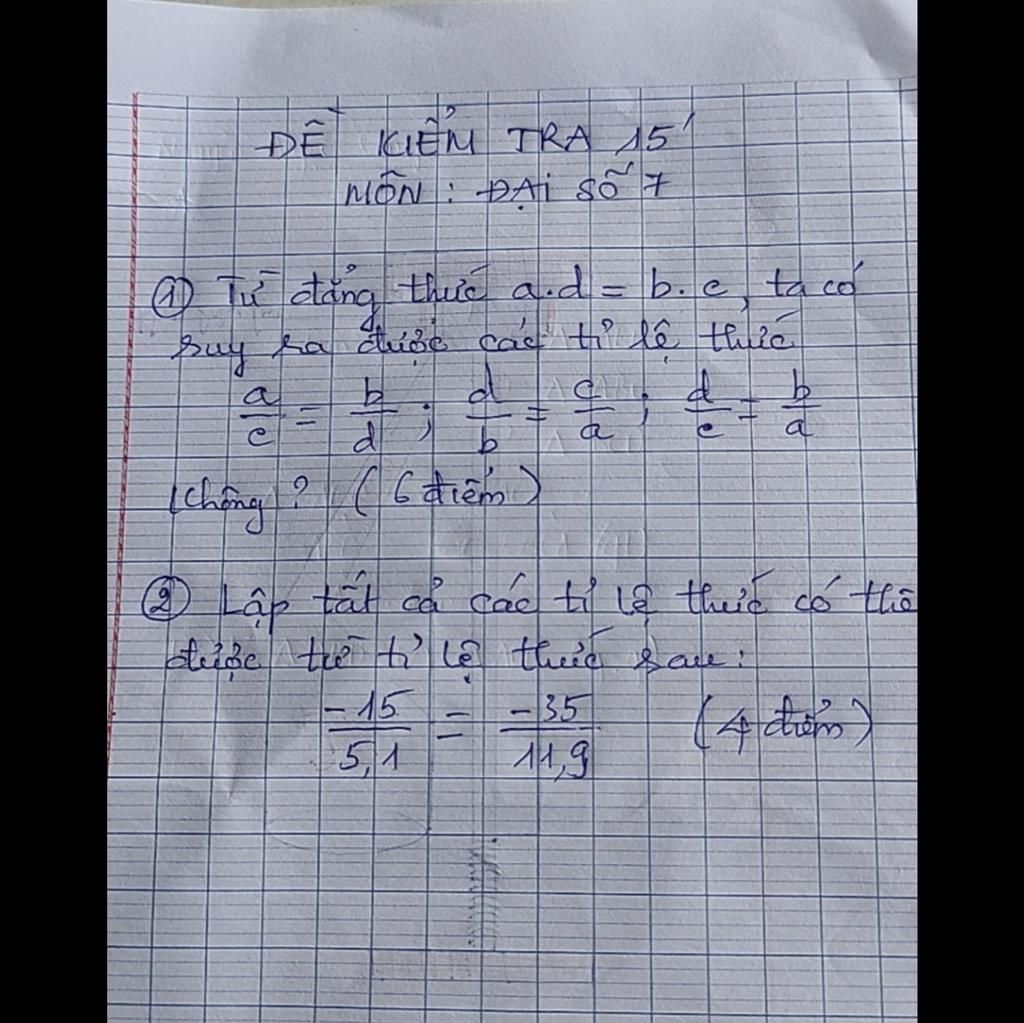 ĐỀ KIỂM TRA 15'
MÔN : ĐẠI SỐ 7
① Từ đẳng thức a.d = b.c, ta có
suy ra được các tỉ lệ thức
a/c = b/d ; d/b = c/a ; d/c = b/a
không ? (6 điểm)
② Lập tất cả các tỉ lệ thức có thể
được từ tỉ lệ thức sau :
-15/5,1 = -35/11,9 (4 điểm)